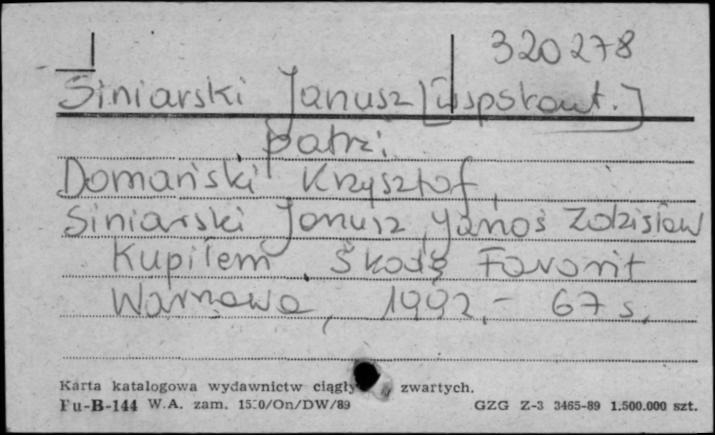 320278
Siniarski Janusz [współaut.]
patrz:
Domański Krzysztof,
Siniarski Janusz, Janoś Zdzisław
Kupiłem Škodę Favorit
Warszawa, 1992.- 67 s.
Karta katalogowa wydawnictw ciągły zwartych.
Fu-B-144 W.A. zam. 1530/On/DW/89 GZG Z-3 3465-89 1.500.000 szt.